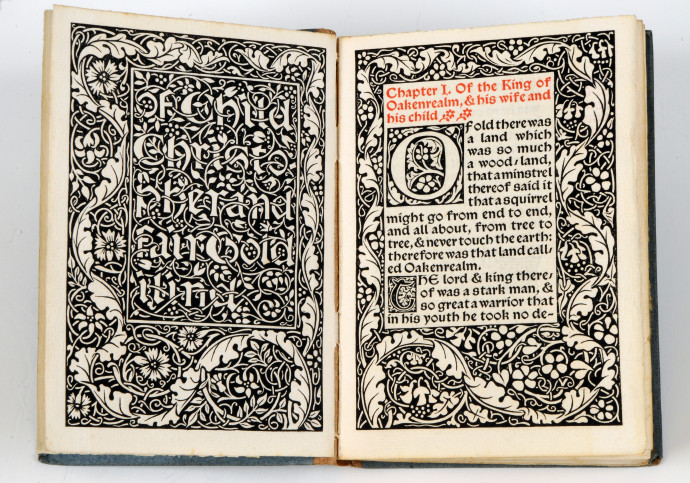 Of Child
Christo
pher and
Fair Gold
ilind
Chapter I. Of the King of
Oakenrealm, & his wife and
his child
Of old there was
a land which
was so much
a wood/land,
that a minstrel
thereof said it
that a squirrel
might go from end to end,
and all about, from tree to
tree, & never touch the earth:
therefore was that land call-
ed Oakenrealm.
The lord & king there-
of was a stark man, &
so great a warrior that
in his youth he took no de-